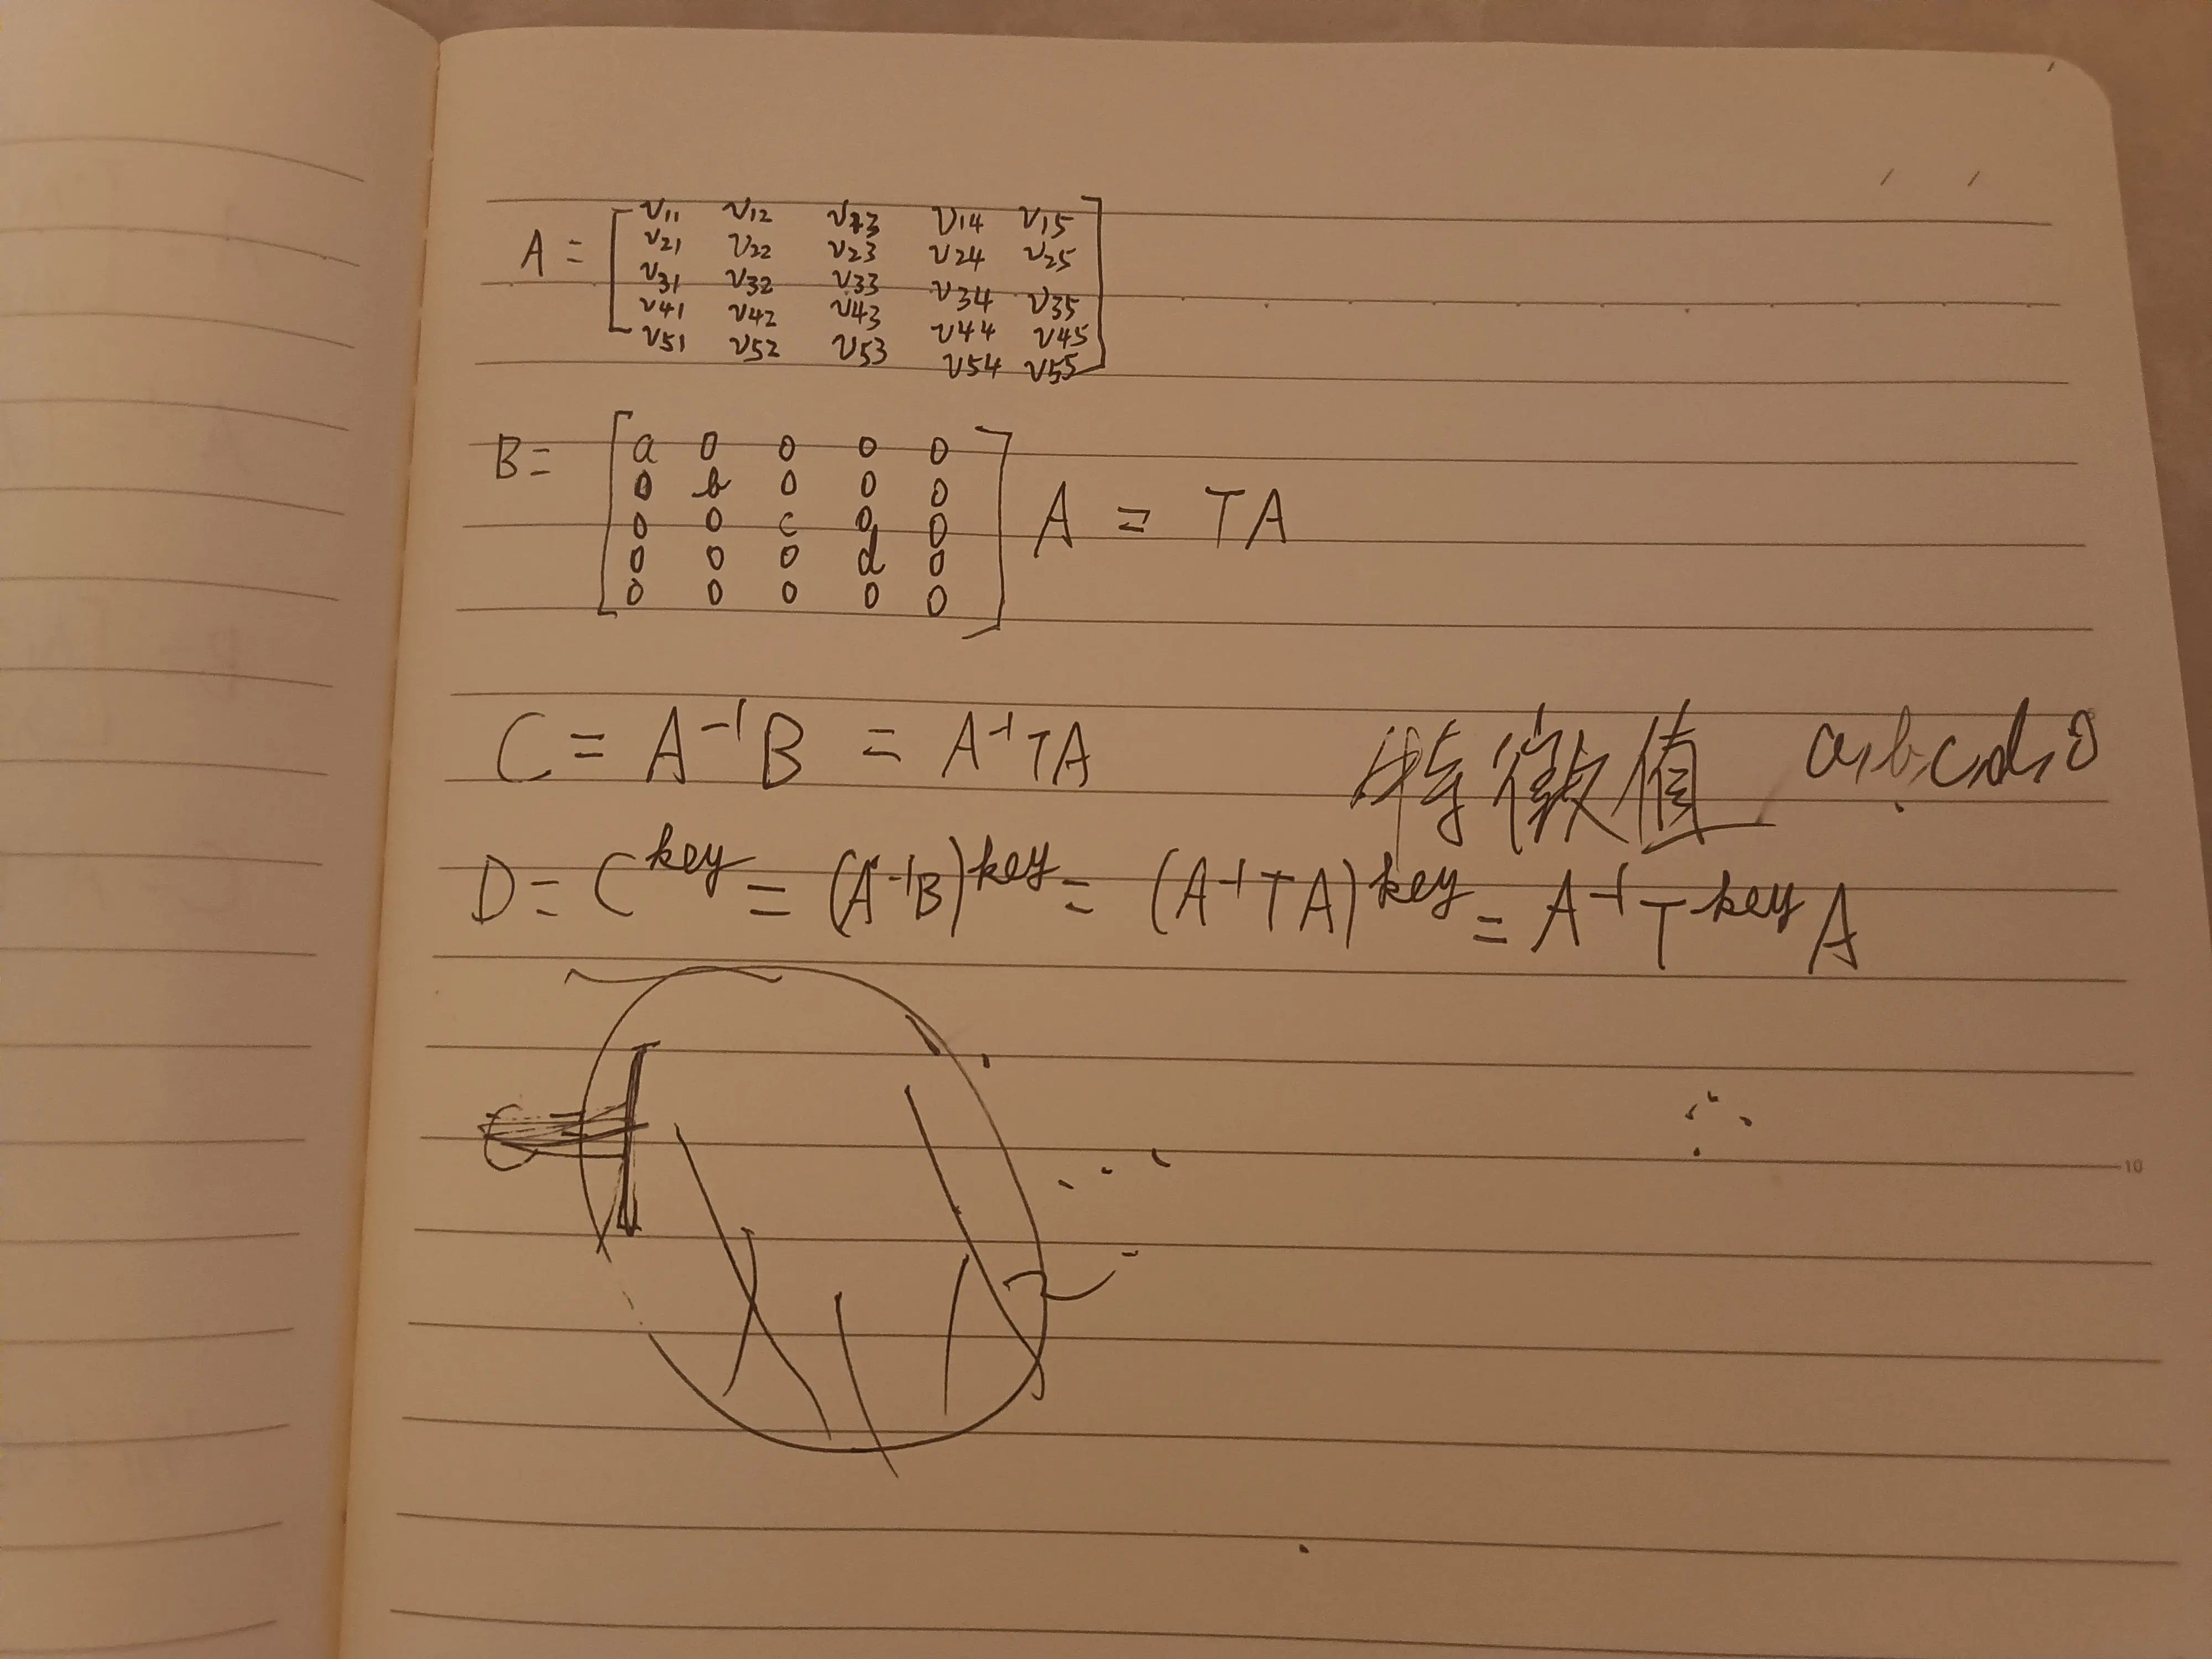 A = [ v11 v12 v13 v14 v15
v21 v22 v23 v24 v25
v31 v32 v33 v34 v35
v41 v42 v43 v44 v45
v51 v52 v53 v54 v55 ]
B = [ a 0 0 0 0
0 b 0 0 0
0 0 c 0 0
0 0 0 d 0
0 0 0 0 0 ] A = TA
C = A⁻¹B = A⁻¹TA 特徵值 a,b,c,d,0
D = C^key = (A⁻¹B)^key = (A⁻¹TA)^key = A⁻¹T^key A
10